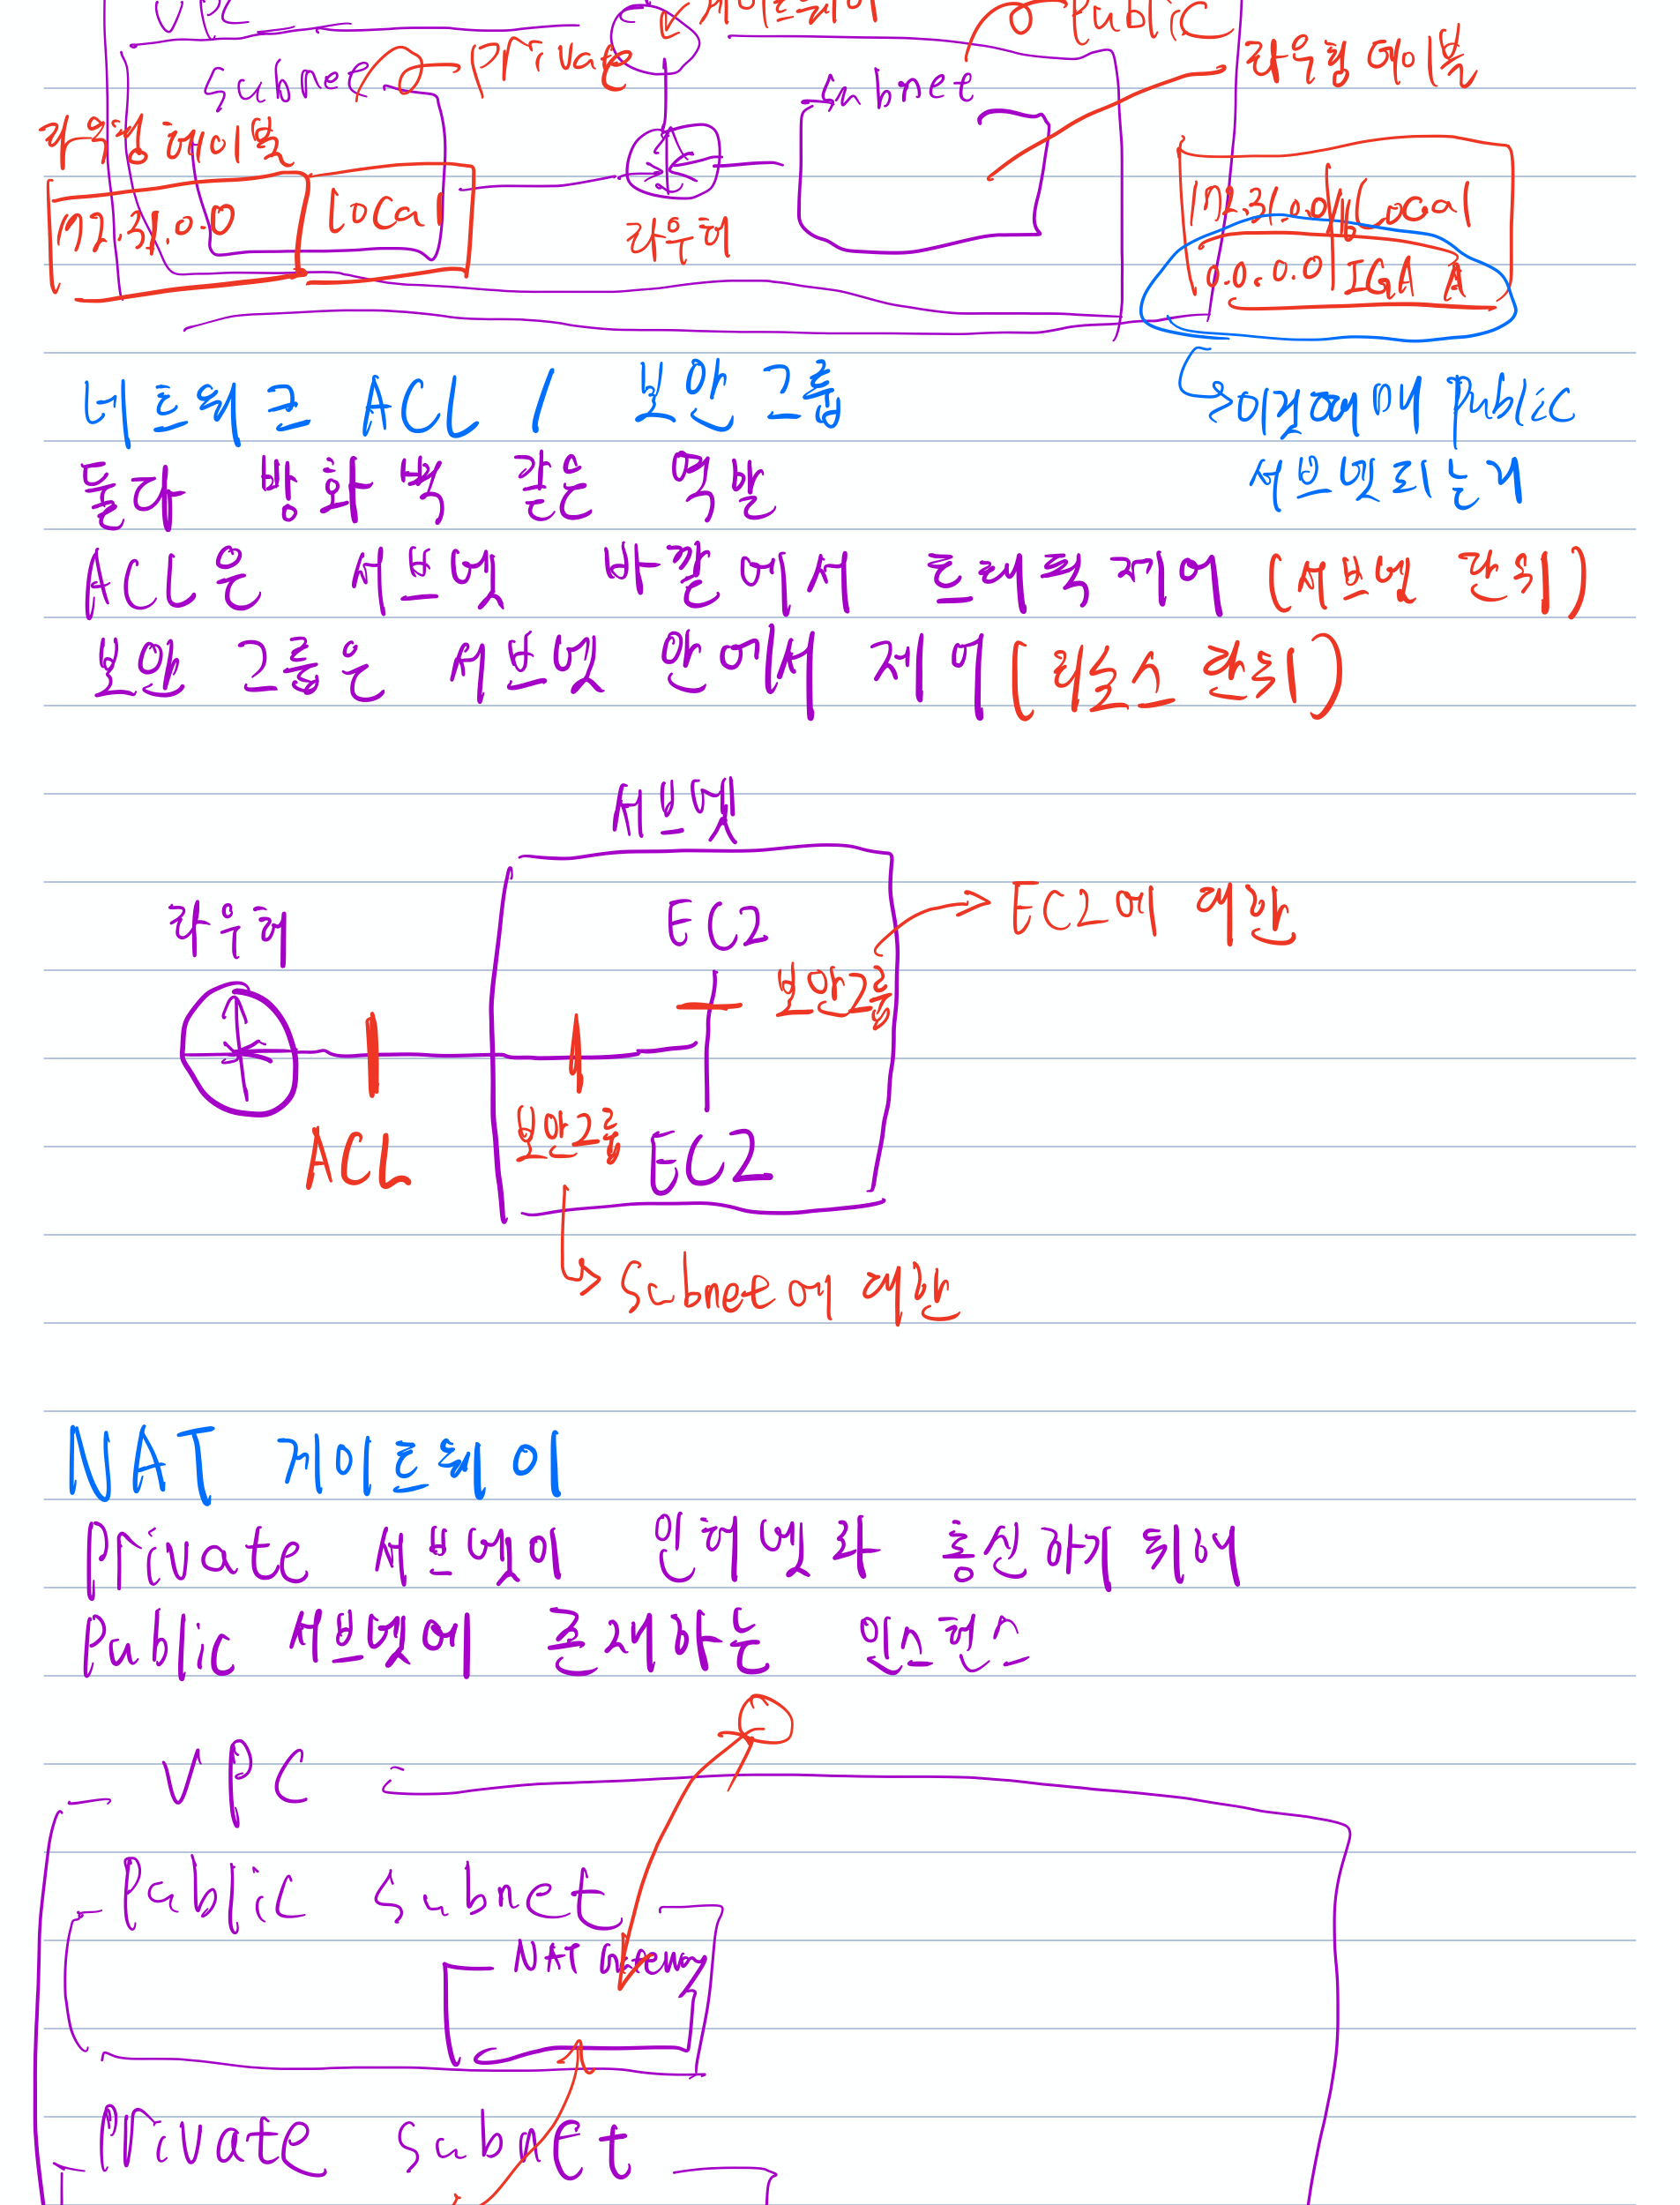 VPC
게이트웨이
Public
Subnet
Private
subnet
라우팅 테이블
라우팅 테이블
172.31.0.0 Local
라우터
172.31.0.0/16 Local
0.0.0.0 IGA A
네트워크 ACL / 보안 그룹
이것때매 Public
서브넷되는거
둘다 방화벽 같은 역할
ACL은 서브넷 바깥에서 트래픽 제어 (서브넷 단위)
보안 그룹은 서브넷 안에서 제어 (리소스 단위)
서브넷
라우터
EC2
EC2에 대한
보안그룹
ACL
보안그룹
EC2
Subnet에 대한
NAT 게이트웨이
Private 서브넷이 인터넷과 통신하기 위해
Public 서브넷에 존재하는 인스턴스
VPC
Public Subnet
NAT Gateway
Private Subnet